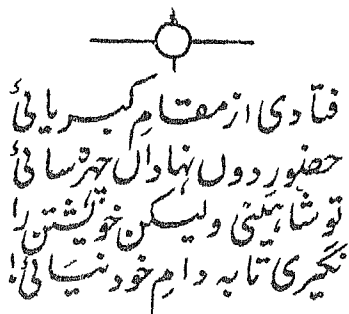 فتادی از مقامِ کبریائی
حضورِ دوں نہاداں چہرہ سائی
تو شاہینی و لیکن خویشتن را
نگیری تا بہ دامِ خود نیائی!